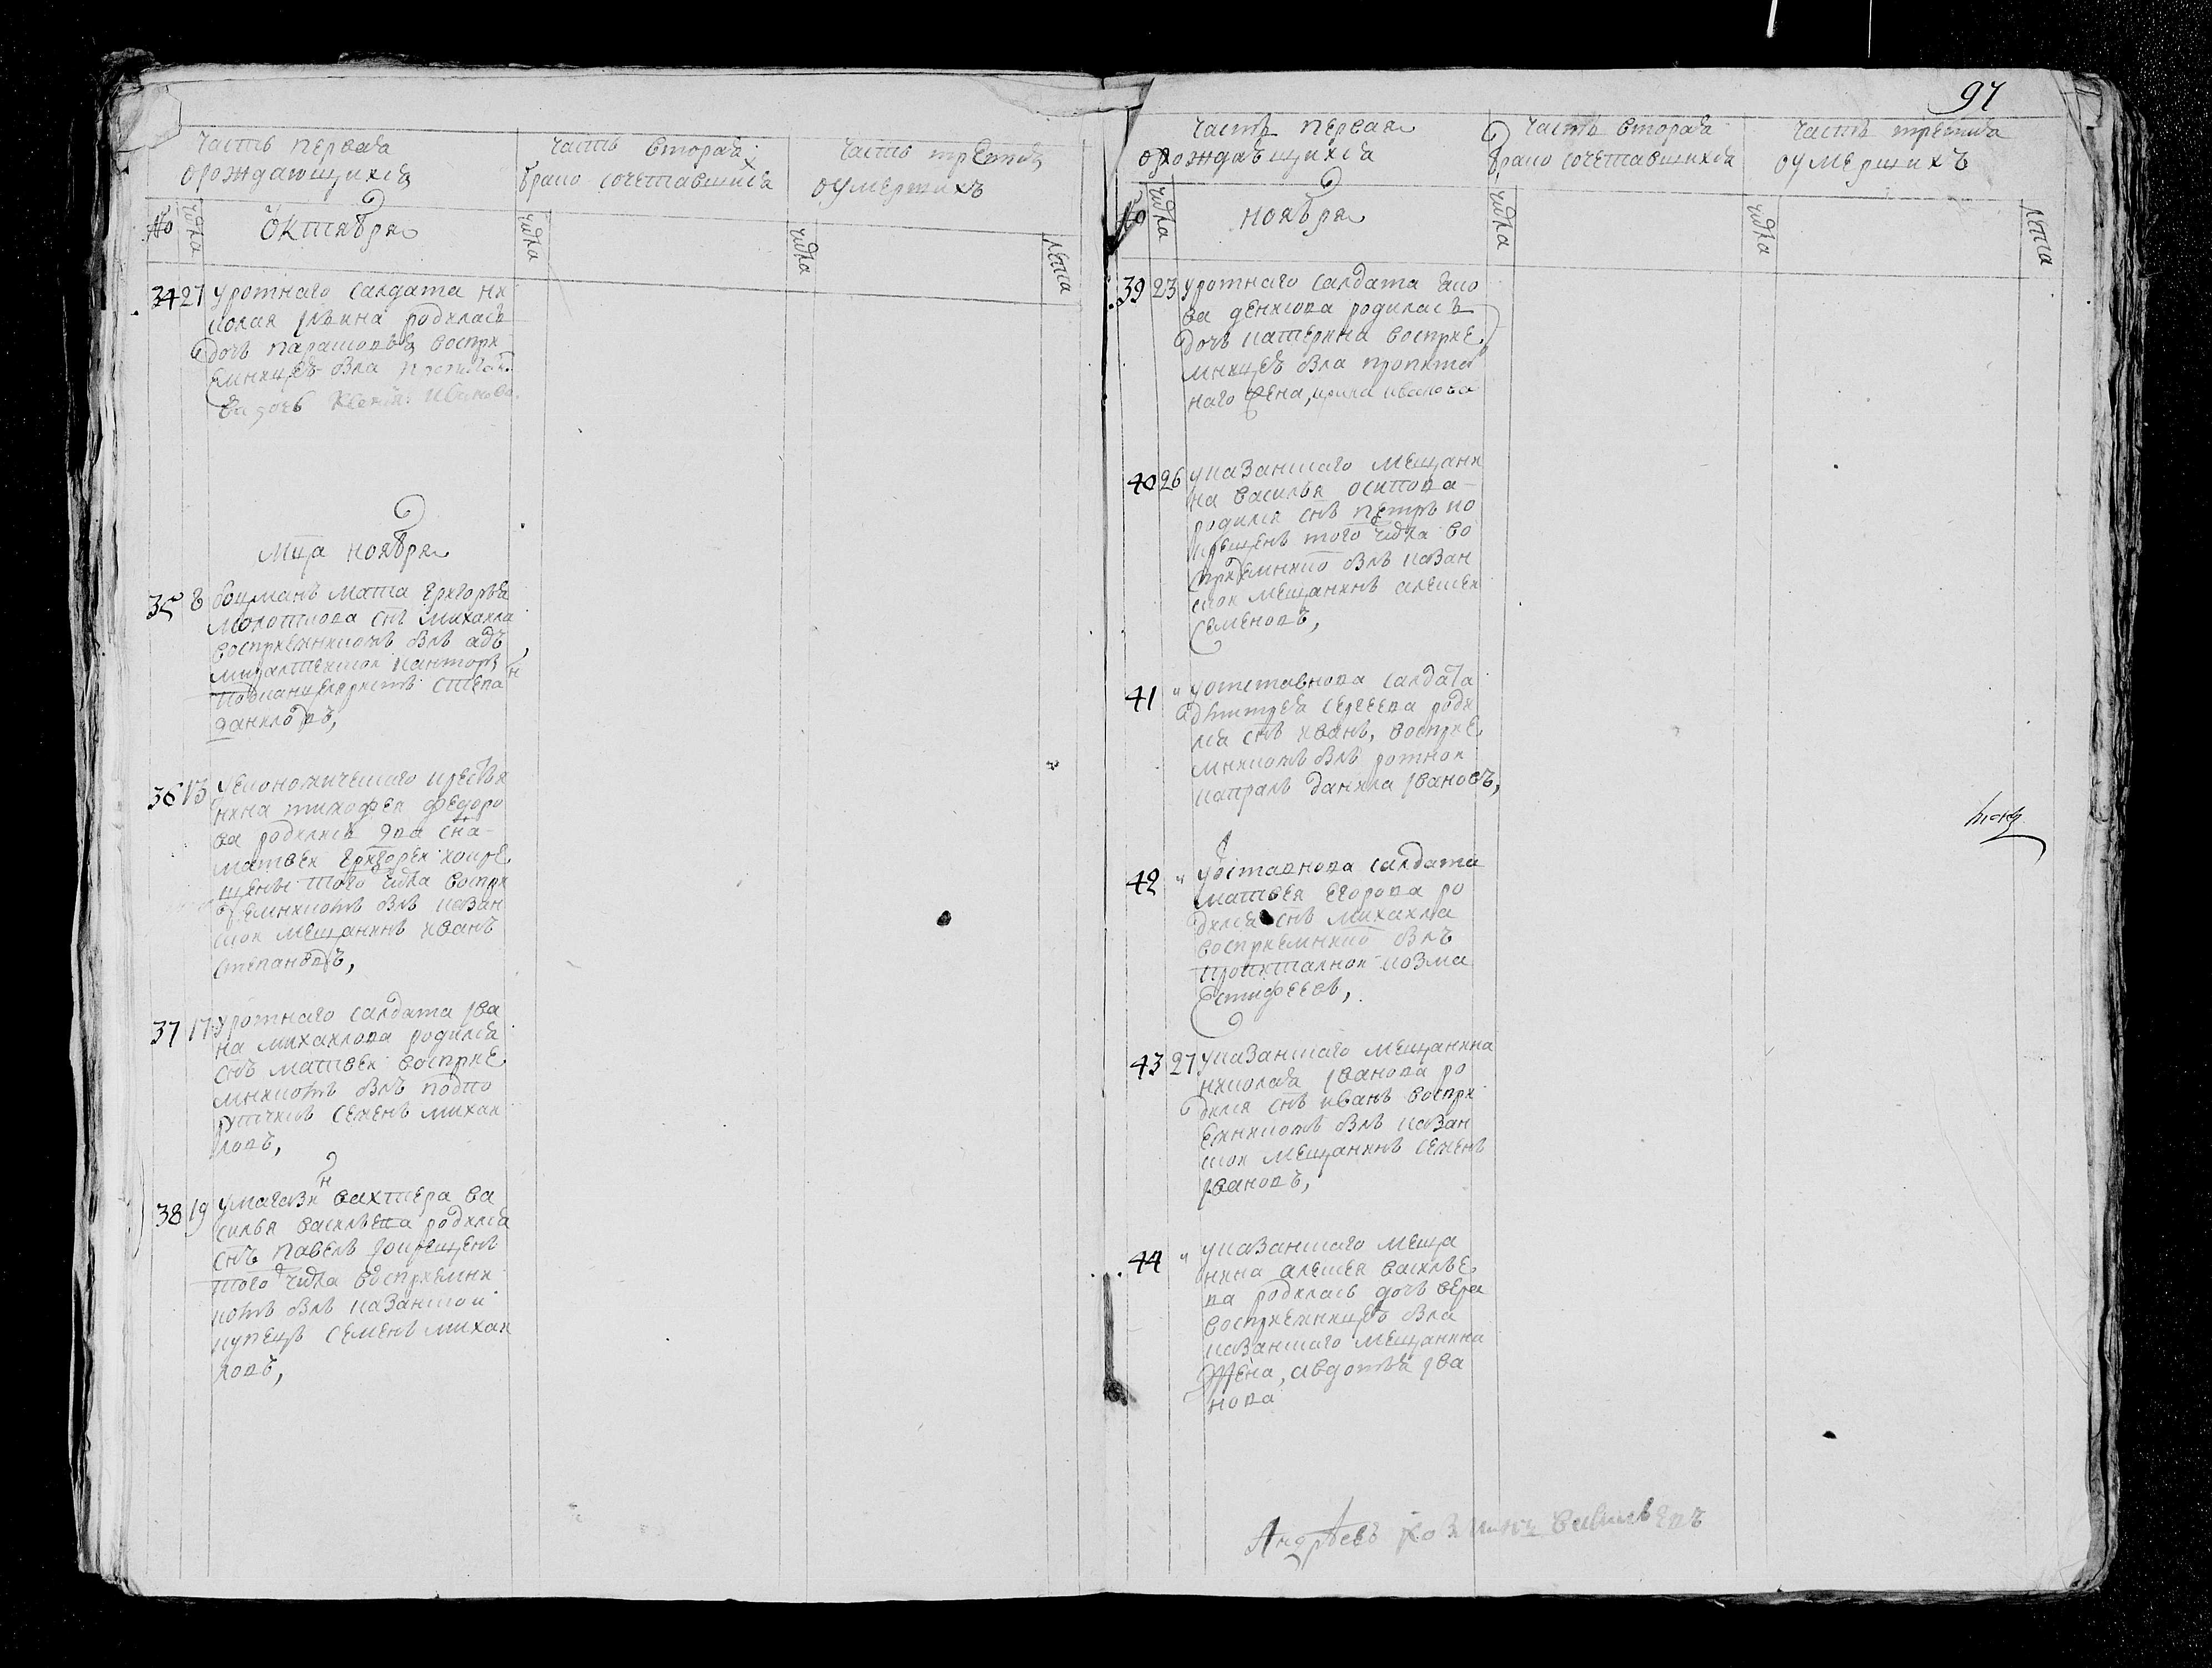 часть первая
орождающихся
часть вторая
брако сочетавшихся
часть третия
оумершихъ
№
числа
октября
числа
числа
лета
34 27 уротнаго салдата ни
колая ильина родилась
дочь парасковья воспри
емницеѣ бла
дочь Иванова
мца ноября
35 8 боцманъ мата григорья
молоткова снъ михаила
восприемникомъ блъ адъ
миралтейской канторы
подканцеляристъ степан
даниловъ,
36 13 уекономическаго крестья
нина тимофея федоро
ва родились два сна
матвей григорей кокре
щены того числа воспри
емникомъ блъ казан
ской мещанинъ иванъ
степановъ,
37 17 уротнаго салдата ива
на михаилова родился
снъ матвей восприе
мникомъ блъ подпо
ручикъ семенъ михаи
ловъ,
38 19 умагазин вахтера ва
силья васильева родился
снъ павелъ кокрещенъ
того числа восприемни
комъ блъ казанской
купецъ семенъ михаи
ловъ,
97
часть первая
орождающихся
часть вторая
брако сочетавшихся
часть третия
оумершихъ
№
числа
ноября
числа
числа
лета
39 23 уротнаго салдата яко
ва денисова родилась
дочь катерина восприе
мницеѣ бла пропита
наго жена, ирина иванова
40 26 указанскаго мещани
на василья осипова
родился снъ петръ ко
крещенъ того числа во
сприемнико блъ казан
ской мещанинъ алексей
семеновъ,
41 " уотставнова салдата
дмитрея сергеева роди
лся снъ иванъ, восприе
мникомъ блъ ротной
капралъ данила ивановъ,
42 " уотставнова салдата
матвея егорова ро
дился снъ михаила
восприемнико блъ
пропиталной козма
естифеевъ,
43 27 указанскаго мещанина
николая иванова ро
дился снъ иванъ воспри
емникомъ блъ казан
ской мещанинъ семенъ
ивановъ,
44 " указанскаго меща
нина алексея василье
ва родилась дочь вера
восприемницеѣ бла
казанскаго мещанина
жена, авдотья ива
нова
Андреевъ